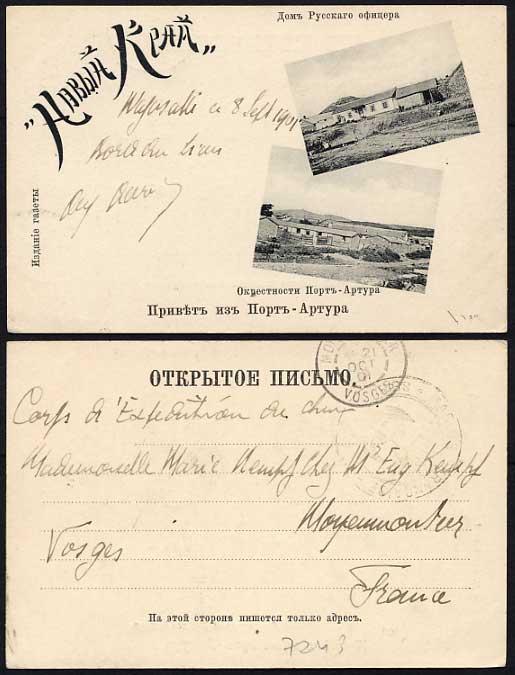 Домъ Русскаго офицера
"Новый Край"
8 Sept 1901
Изданіе газеты
Окрестности Портъ-Артура
Привѣтъ изъ Портъ-Артура
ОТКРЫТОЕ ПИСЬМО
21
OCT
01
VOSGES
Corps d'Expédition de Chine
Mademoiselle Marie Kempf chez Mr Eug Kempf
Moyenmoutier
Vosges
France
На этой сторонѣ пишется только адресъ.
7243